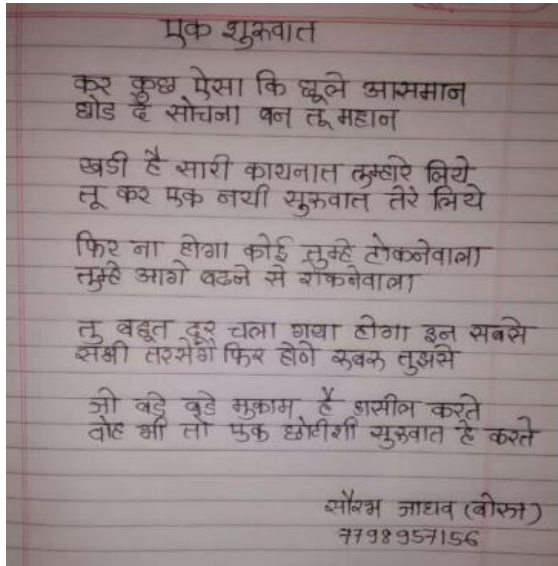 एक शुरुवात
कर कुछ ऐसा कि छूले आसमान
छोड दे सोचना बन तू महान
खडी है सारी कायनात तुम्हारे लिये
तू कर एक नयी सुरुवात तेरे लिये
फिर ना होगा कोई तुम्हे टोकनेवाला
तुम्हे आगे बढने से रोकनेवाला
तु बहूत दूर चला गया होगा इन सबसे
सभी तरसेंगे फिर होने रुबरु तुझसे
जो बडे बडे मुकाम है हासील करते
वोह भी तो एक छोटीशी सुरुवात है करते
सौरभ जाधव (बोरुा)
7798957156